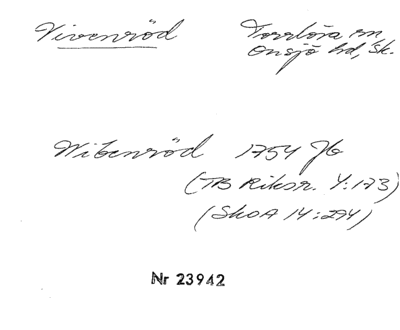 Vivenröd
Torrlösa sn,
Onsjö hd, Sk.
Wibenröd 1754 Jb
(TB Riksr. Y:173)
(SkOA 14:294)
Nr 23942